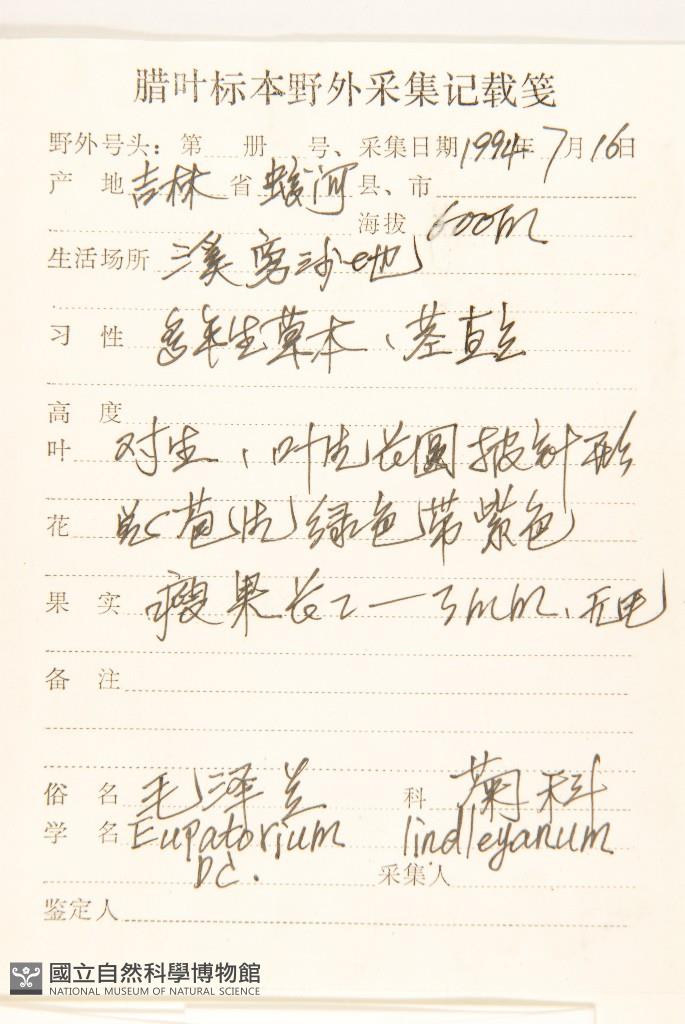 腊叶标本野外采集记载笺
野外号头：第 册 号、采集日期1994年7月16日
产 地 吉林 省 蛟河 县、市
海拔 600m
生活场所 溪旁沙地
习 性 多年生草本、茎直立
高 度
叶 对生，叶片长圆披针形
花 总苞片绿色带紫色
果 实 瘦果长2—3mm、无毛
备 注
俗 名 毛泽兰 科 菊科
学 名 Eupatorium lindleyanum
DC. 采集人
鉴定人
國立自然科學博物館
NATIONAL MUSEUM OF NATURAL SCIENCE